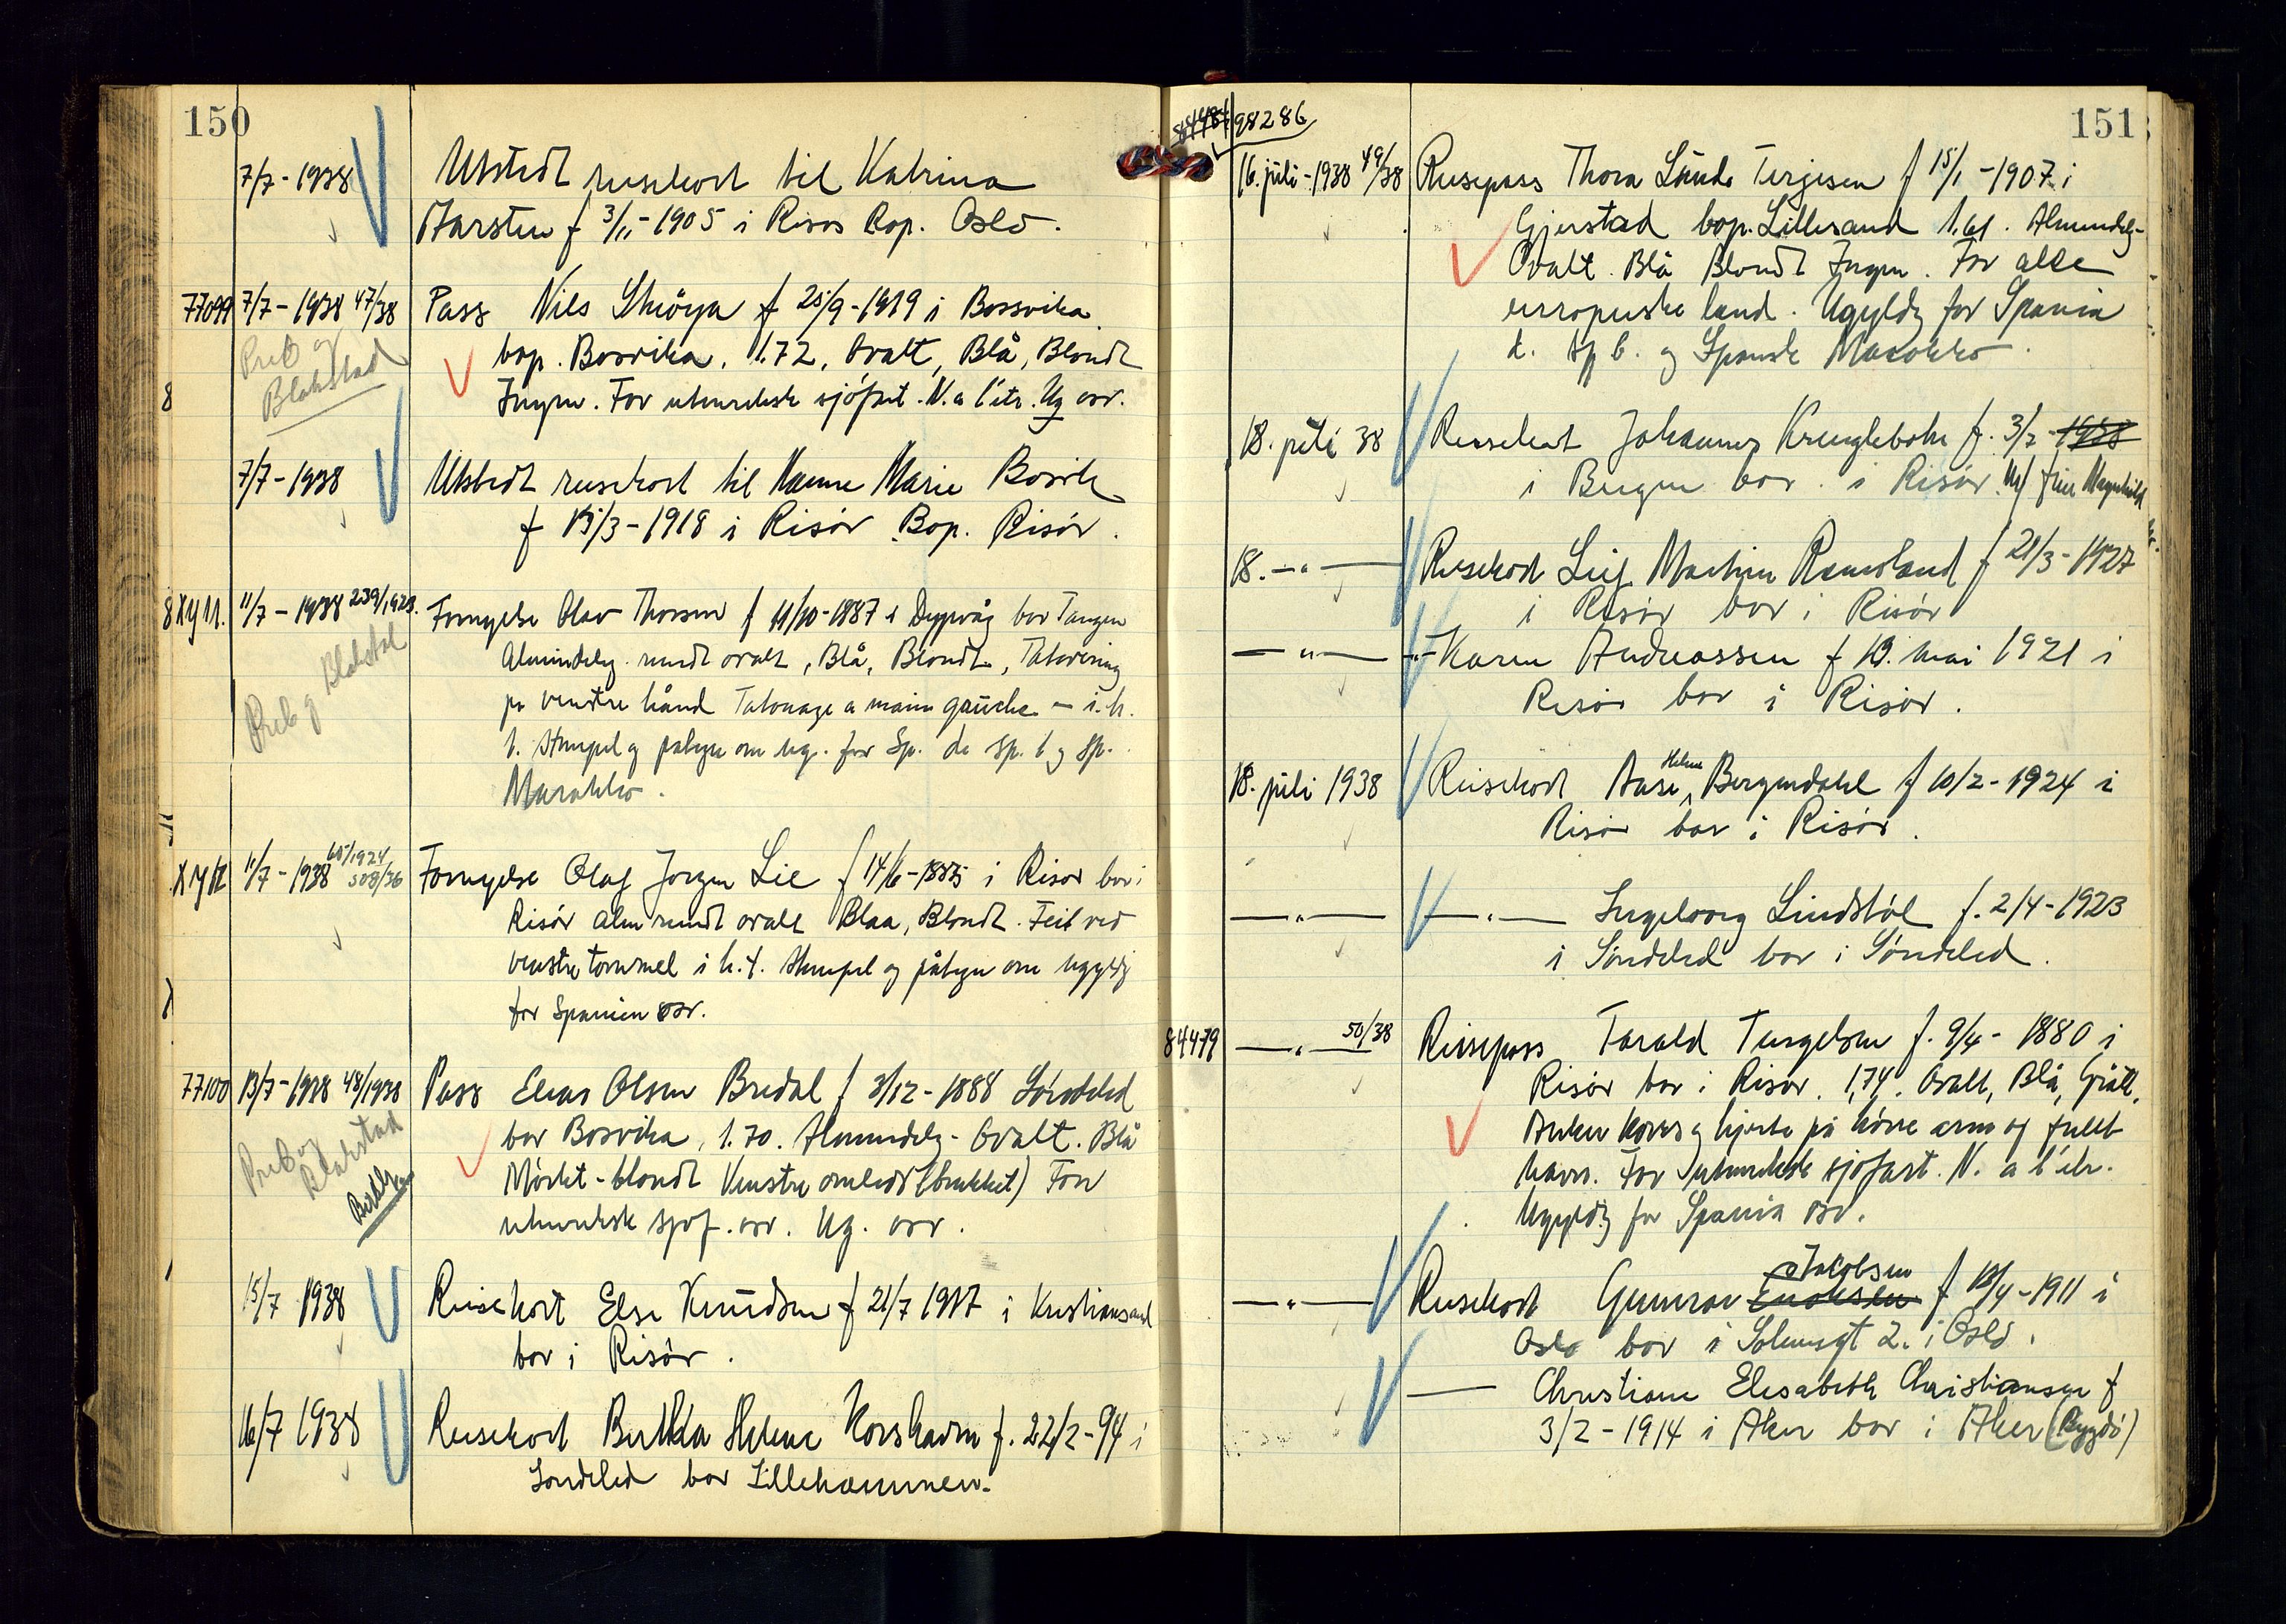 150
7/7-1938 Utstedt reisekort til Katrina
Aarsten f 3/11-1905 i Risør Bop. Oslo.
77099 7/7-1938 47/38 Pass Nils f 25/9-1919 i Bossvika
Preb og bop. Bosvika, 1.72, Ovalt, Blå, Blondt
Blakstad Ingen. For utenriksk sjöfart. N. a l'étr. Ug osv.
8
7/7-1938 Utstedt reisekort til Hanne Marie Bosvik
f 15/3-1918 i Risör Bop. Risör.
11/7-1938 239/1923. Fornyelse Olav Thorsen f 11/10-1887 i Dypvåg bor Tangen
Preb og Blakstad Almindelig rundt ovalt, Blå, Blondt, Tatovering
på venstre hånd Tatouage a main gauche - i. h.
t. Stempel og påtegn om ug. for Sp. de sp. b og Sp.
Marokko.
11/7-1938 60/1924 508/36 Fornyelse Olaf Jorgen Lie f 14/6-1885 i Risør bor i
Risör alm rundt ovalt Blaa, Blondt. Feil ved
venstre tommel i h. t. Stempel og påtegn om ugyldig
for Spanien osv.
77100 13/7-1938 48/1938 Pass Elias Olsen Bredal f 3/12-1888 Söndeled
Preb og Blakstad bor Bosvika, 1.70. Almindelig - Ovalt. Blå
Mörkt-blondt Venstre (brukket) For
utenriksk sjöf. osv. Ug. osv.
15/7 1938 Reisekort Else Knudsen f 21/7 1917 i Kristiansand
bor i Risör.
16/7 1938 Reisekort Berthla Helene Korshavn f. 22/2-94 i
Söndeled bor Lillehammer.
151
98286
16. juli-1938 49/38 Reisepass Thora Lunde Terjesen f 15/1-1907 i
Gjerstad bop. Lillesand 1.61. Almindelig-
Ovalt. Blå Blondt Ingen. For alle
europeiske land. Ugyldig for Spania
d. sp b. og Spansk Marokko.
18. juli 38 Reisekort Johannes Krenglebotn f. 3/2-1928
i Bergen bor i Risör. M/ frue Magnhild
18. -"- Reisekort Leif Martin Ramsland f 21/3-1927
i Risör bor i Risör
-"- -"- Karen Andreassen f 19. mai 1921 i
Risör bor i Risör.
18. juli 1938 Reisekort Aase Helene Bergendahl f 10/2-1924 i
Risör bor i Risör.
-"- -"- Ingeborg Lindstøl f. 2/4-1923
i Söndeled bor i Söndeled.
84479 -"- 50/38 Reisepass Tarald Tergelsen f. 9/4-1880 i
Risör bor i Risör. 1,74. Ovalt, Blå, Grått.
Anker kors og hjerte på höire arm og fullt
navn. For utenriksk sjöfart. N. a l'étr.
Ugyldig for Spania osv.
-"- Reisekort Gunvor Enoksen Jakobsen f 13/4-1911 i
Oslo bor i 2. i Oslo.
— Christiane Elisabeth Christiansen f
3/2-1914 i Aker bor i Aker (Bygdö)